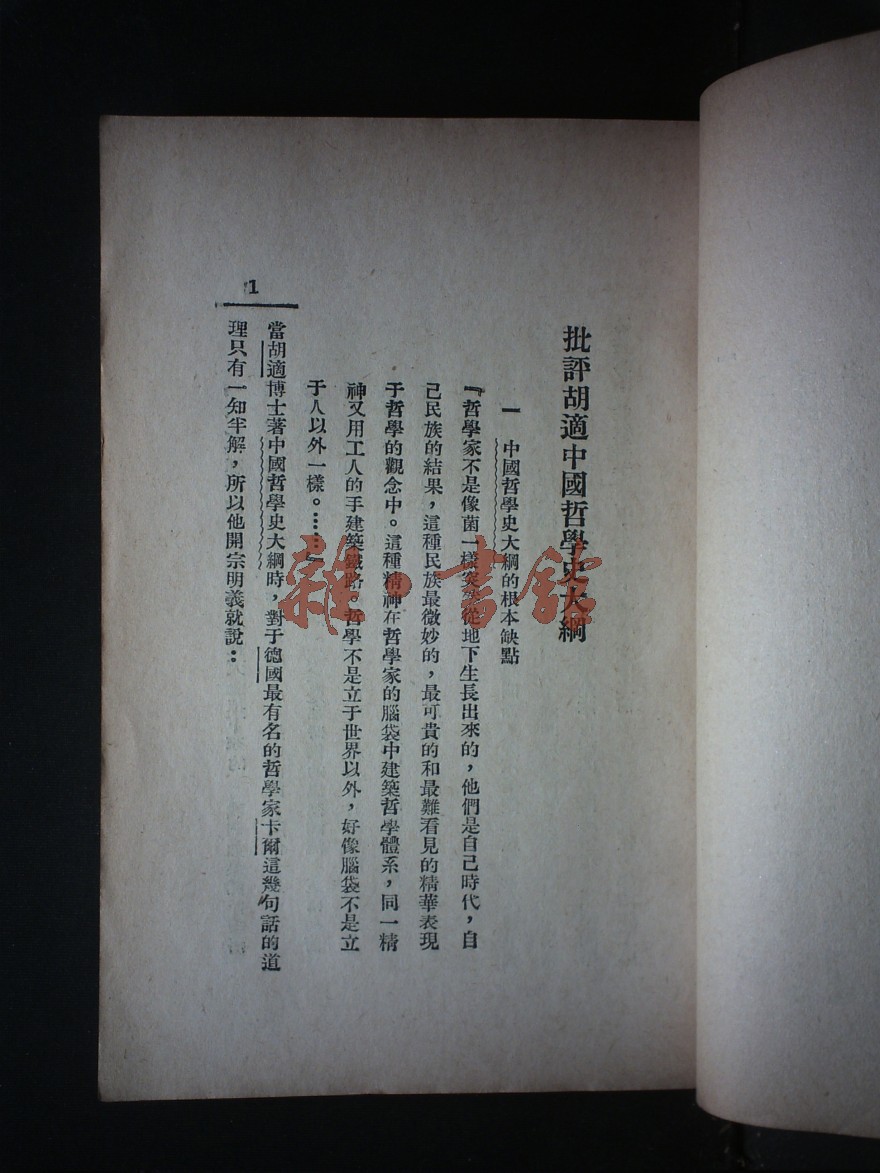 批評胡適中國哲學史大綱
一 中國哲學史大綱的根本缺點
『哲學家不是像菌一樣突然從地下生長出來的,他們是自己時代,自
己民族的結果,這種民族最微妙的,最可貴的和最難看見的精華表現
于哲學的觀念中。這種精神在哲學家的腦袋中建築哲學體系,同一精
神又用工人的手建築鐵路。哲學不是立于世界以外,好像腦袋不是立
于人以外一樣。……』
當胡適博士著中國哲學史大綱時,對于德國最有名的哲學家卡爾這幾句話的道
理只有一知半解,所以他開宗明義就說:
1
雜·書館